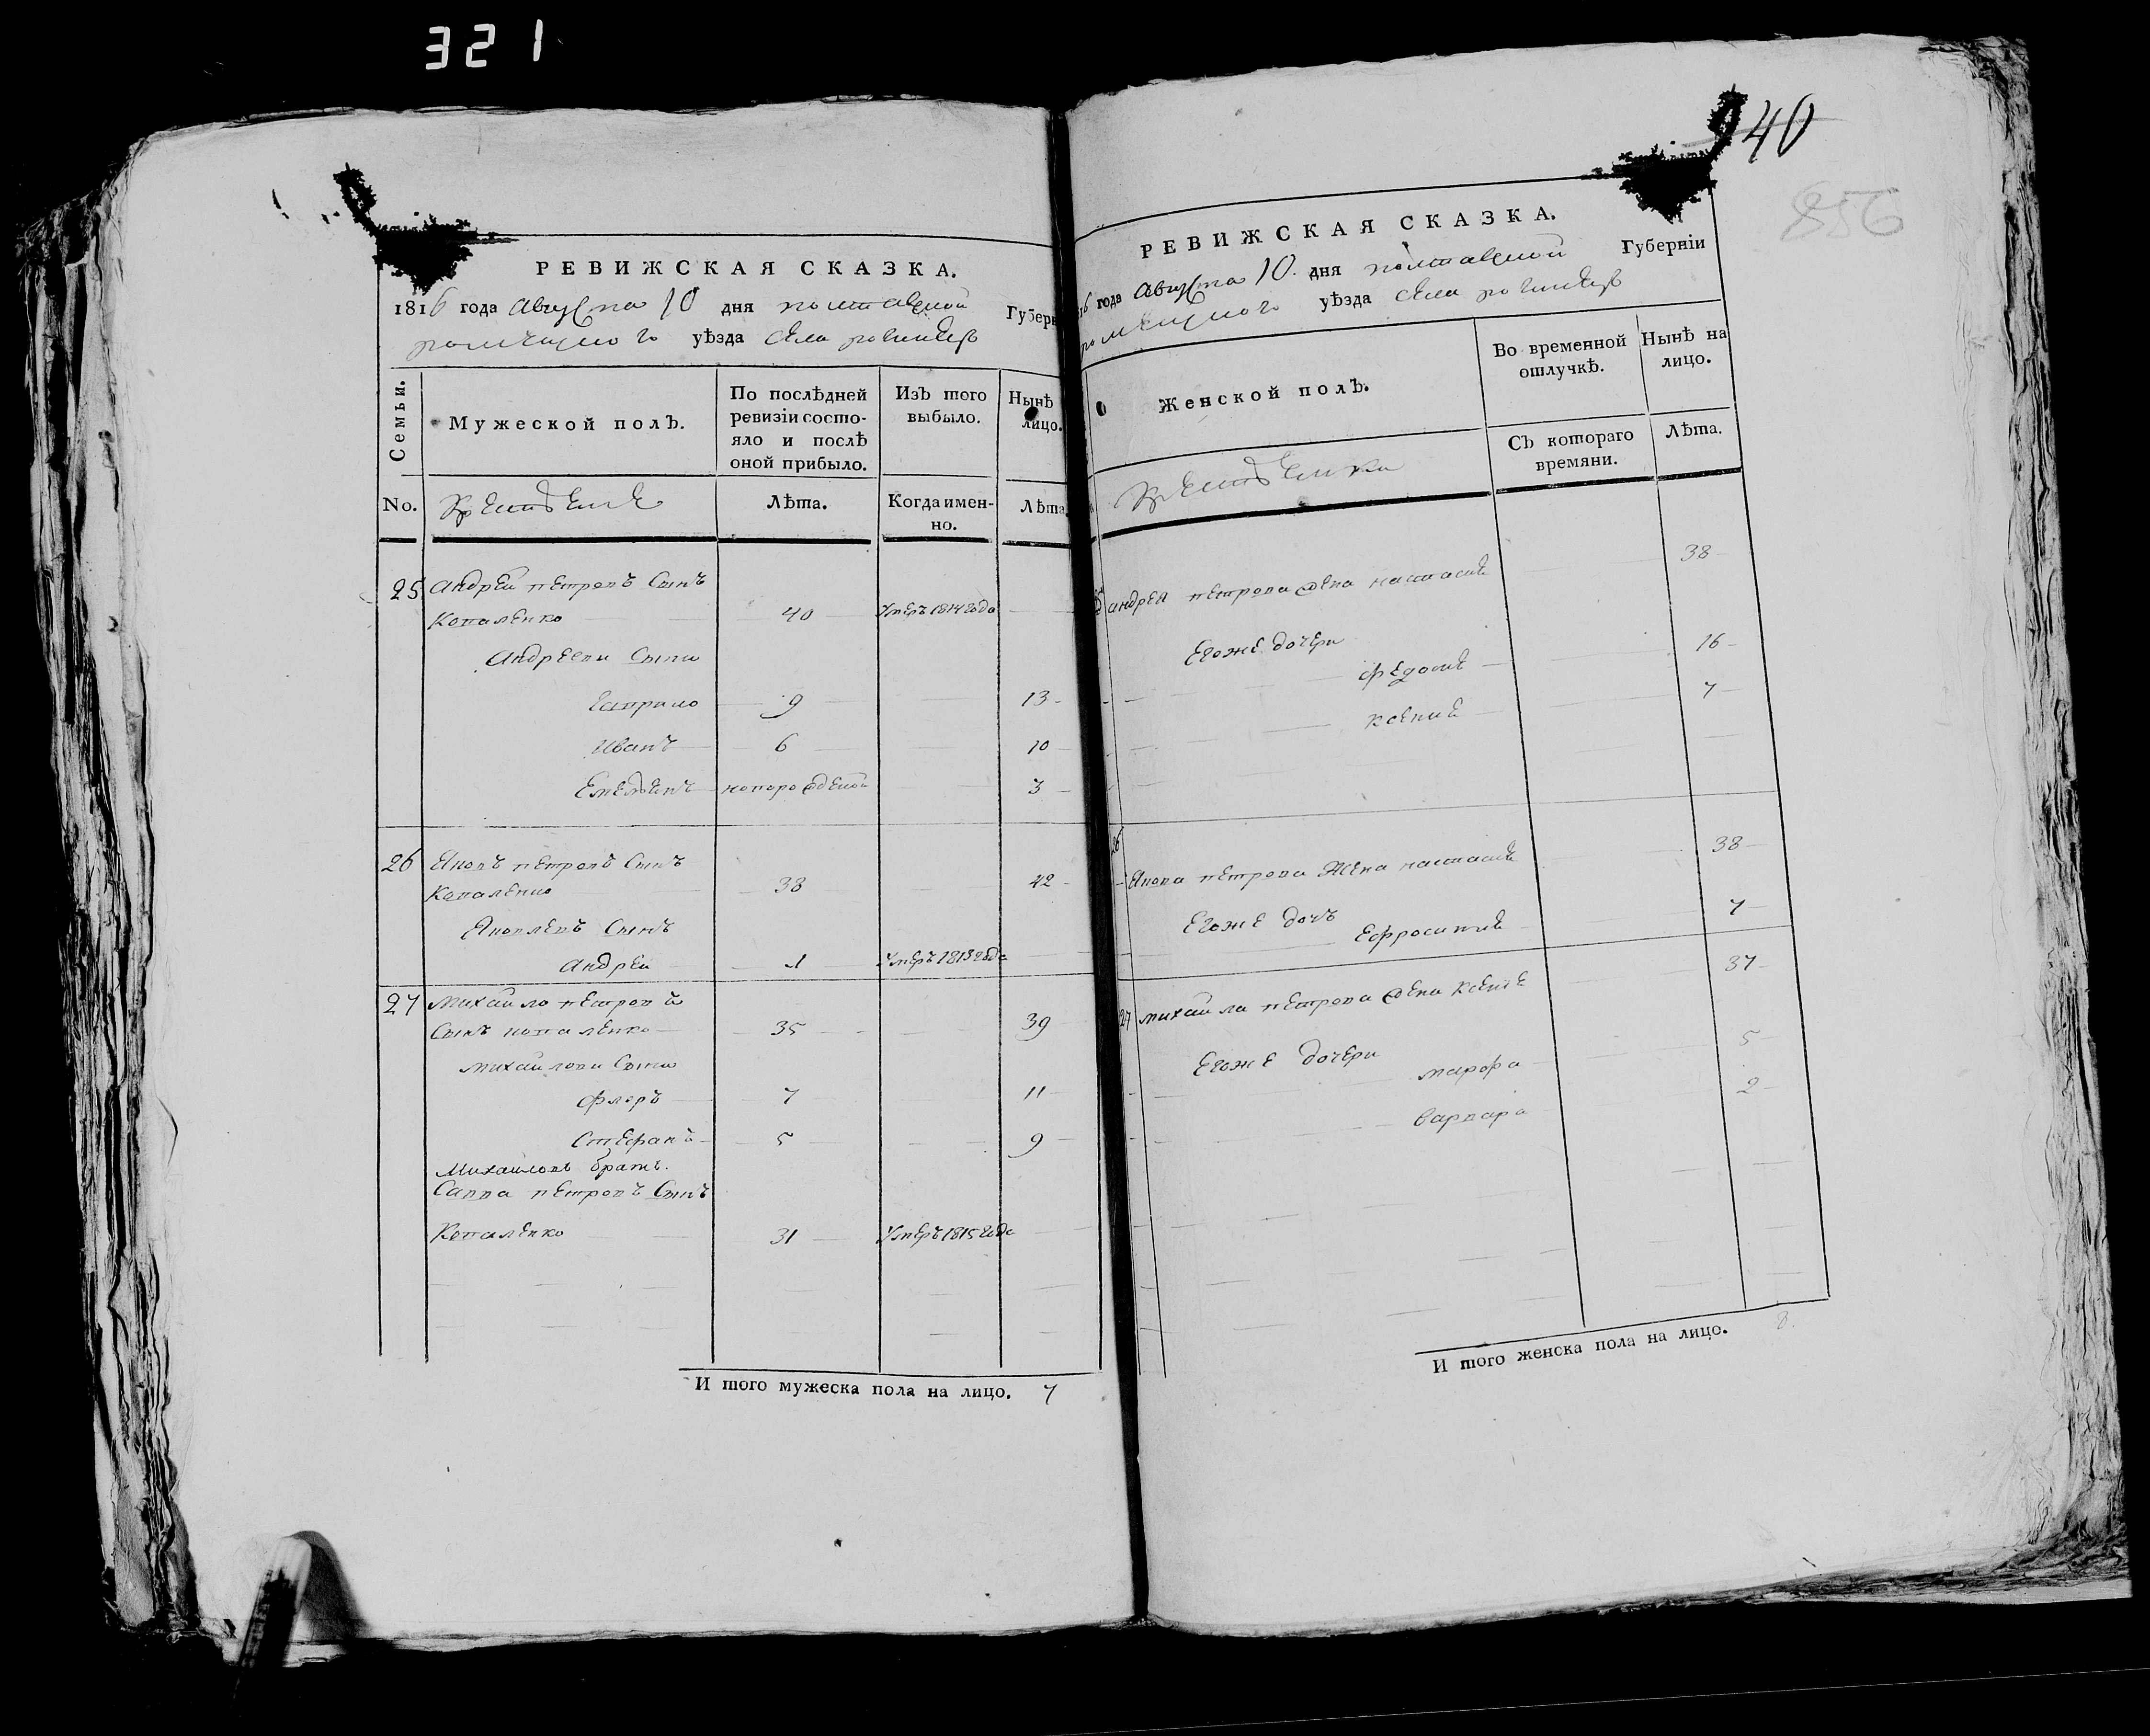 321
РЕВИЖСКАЯ СКАЗКА.
1816 года Августа 10 дня полтавской Губерн
роменского уѣзда села
Семьи.
Мужеской полъ.
По послѣдней ревизіи состо-
яло и послѣ
оной прибыло.
Изъ того
выбыло.
Нынѣ
лицо.
No.
Лѣта.
Когда имен-
но.
Лѣта
25 Андрей петровъ Сынъ
Коваленко 40 Умеръ 1814 года
Андреевы Сыны
9 13
Иванъ 6 10
Емельянъ новорожденой 3
26 Яковъ петровъ Сынъ
Коваленко 38 42
Яковлевъ Сынъ
Андрей 1 Умеръ 1813 года
27 михайло петровъ
Сынъ коваленко 35 39
михайловы Сыны
Флоръ 7 11
Стефанъ 5 9
Михайловъ братъ.
Савва петровъ Сынъ
Коваленко 31 Умеръ 1815 года
И того мужеска пола на лицо. 7
40
856
РЕВИЖСКАЯ СКАЗКА.
16 года Августа 10. дня полтавской Губерніи
роменского уѣзда села
Женской полъ.
Во временной
отлучкѣ.
Нынѣ на
лицо.
Съ котораго
времяни.
Лѣта.
андрея петрова жена настасія 38
Егоже дочери
федосія 16
ксенія 7
26
Якова петрова Жена настасія 38
Егоже дочъ
Ефросинія 7
27 михайла петрова жена Ксенія 37
Егоже дочери
марфа 5
варвара 2
И того женска пола на лицо. 8